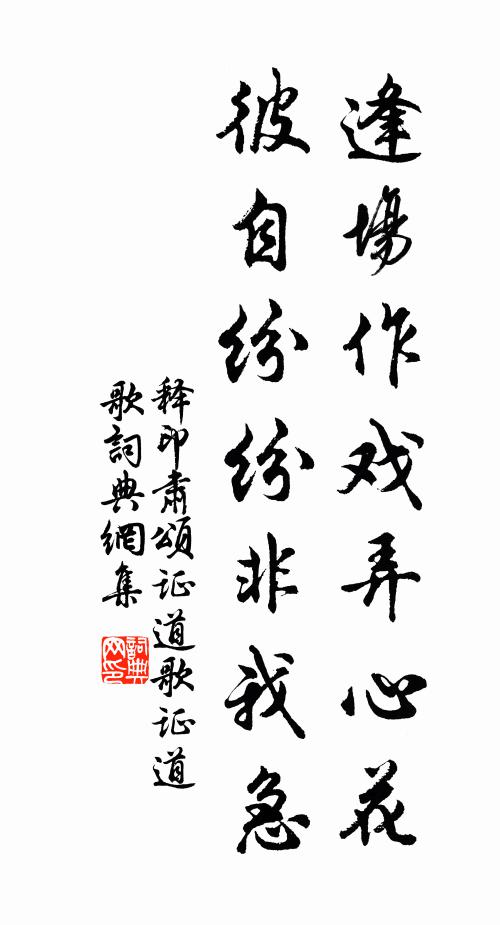 逢場作戏弄心花
彼自纷纷非我急
释印肅頌证道歌证道
歌詞典網集
詞典
网印